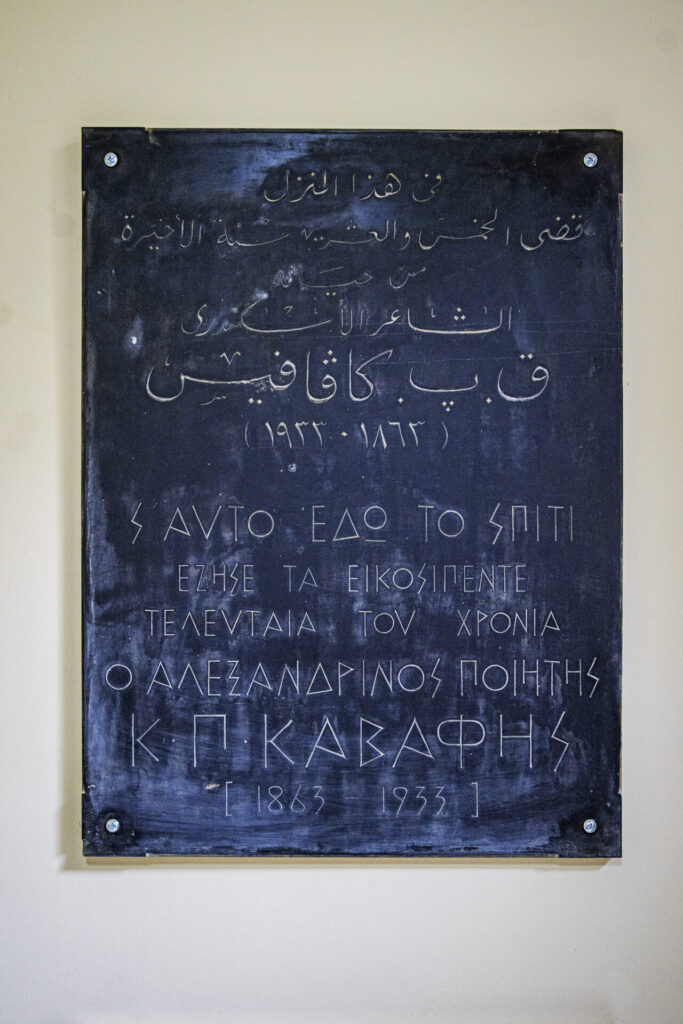 في هذا المنزل
قضى الخمس والعشرين سنة الأخيرة
من حياته
الشاعر الأسكندرى
ق. پ. كاڤافيس
(١٨٦٣ - ١٩٣٣)
Σ ΑΥΤΟ ΕΔΩ ΤΟ ΣΠΙΤΙ
ΕΖΗΣΕ ΤΑ ΕΙΚΟΣΙΠΕΝΤΕ
ΤΕΛΕΥΤΑΙΑ ΤΟΥ ΧΡΟΝΙΑ
Ο ΑΛΕΞΑΝΔΡΙΝΟΣ ΠΟΙΗΤΗΣ
Κ·Π·ΚΑΒΑΦΗΣ
[1863 - 1933]